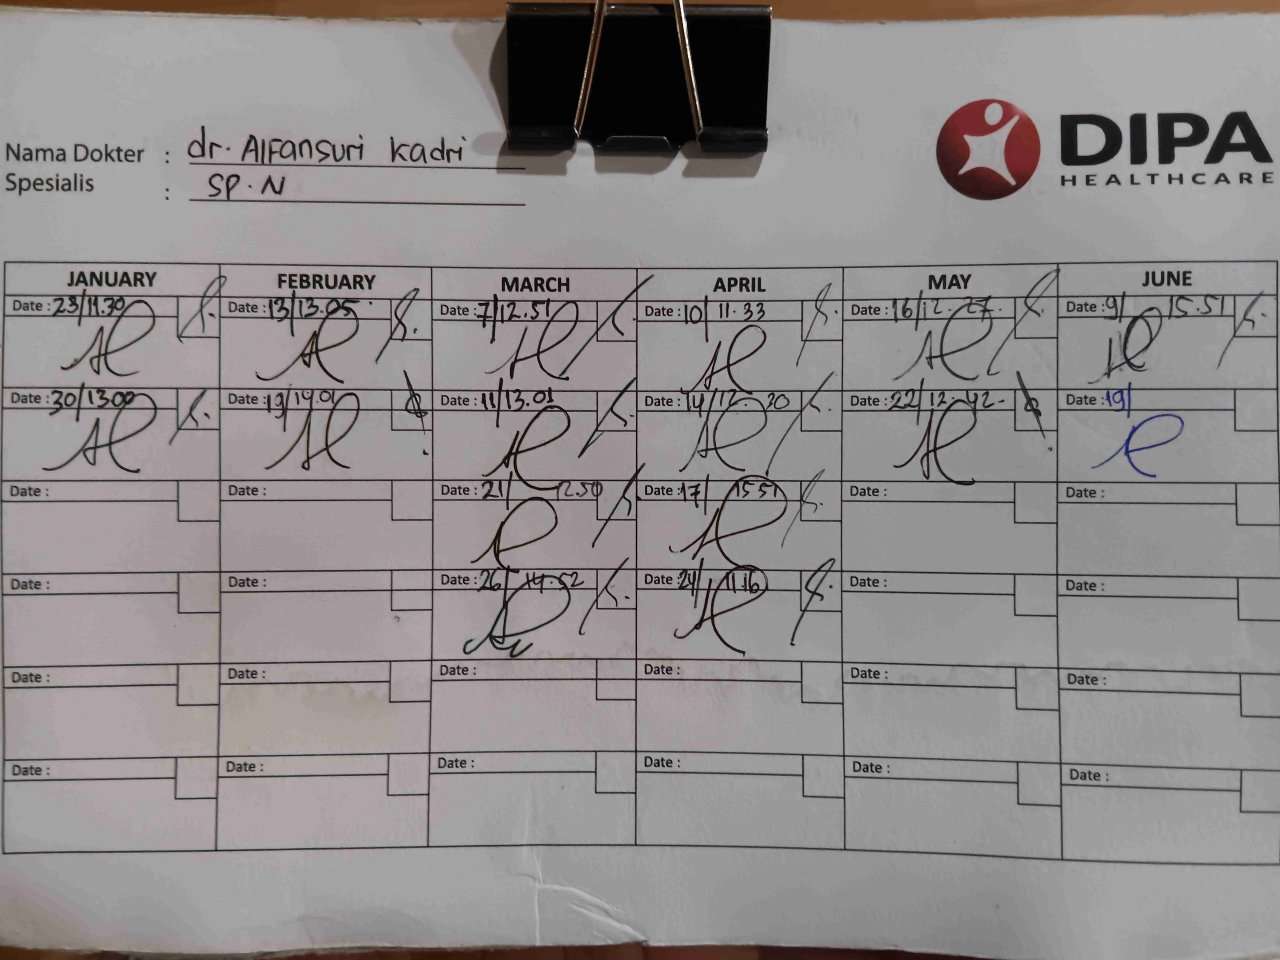 DIPA
HEALTHCARE
Nama Dokter : dr. Alfansuri Kadri
Spesialis : SP.N
JANUARY FEBRUARY MARCH APRIL MAY JUNE
Date : 23/11.30 Date : 13/13.05 Date : 7/12.51 Date : 10/11.33 Date : 16/12.27. Date : 9/15.51
Date : 30/13.00 Date : 19/14.01 Date : 11/13.01 Date : 14/12.20 Date : 22/12.42. Date : 19/
Date : Date : Date : 21/12.50 Date : 17/15.51 Date : Date :
Date : Date : Date : 26/14.52 Date : 24/11.16 Date : Date :
Date : Date : Date : Date : Date : Date :
Date : Date : Date : Date : Date : Date :